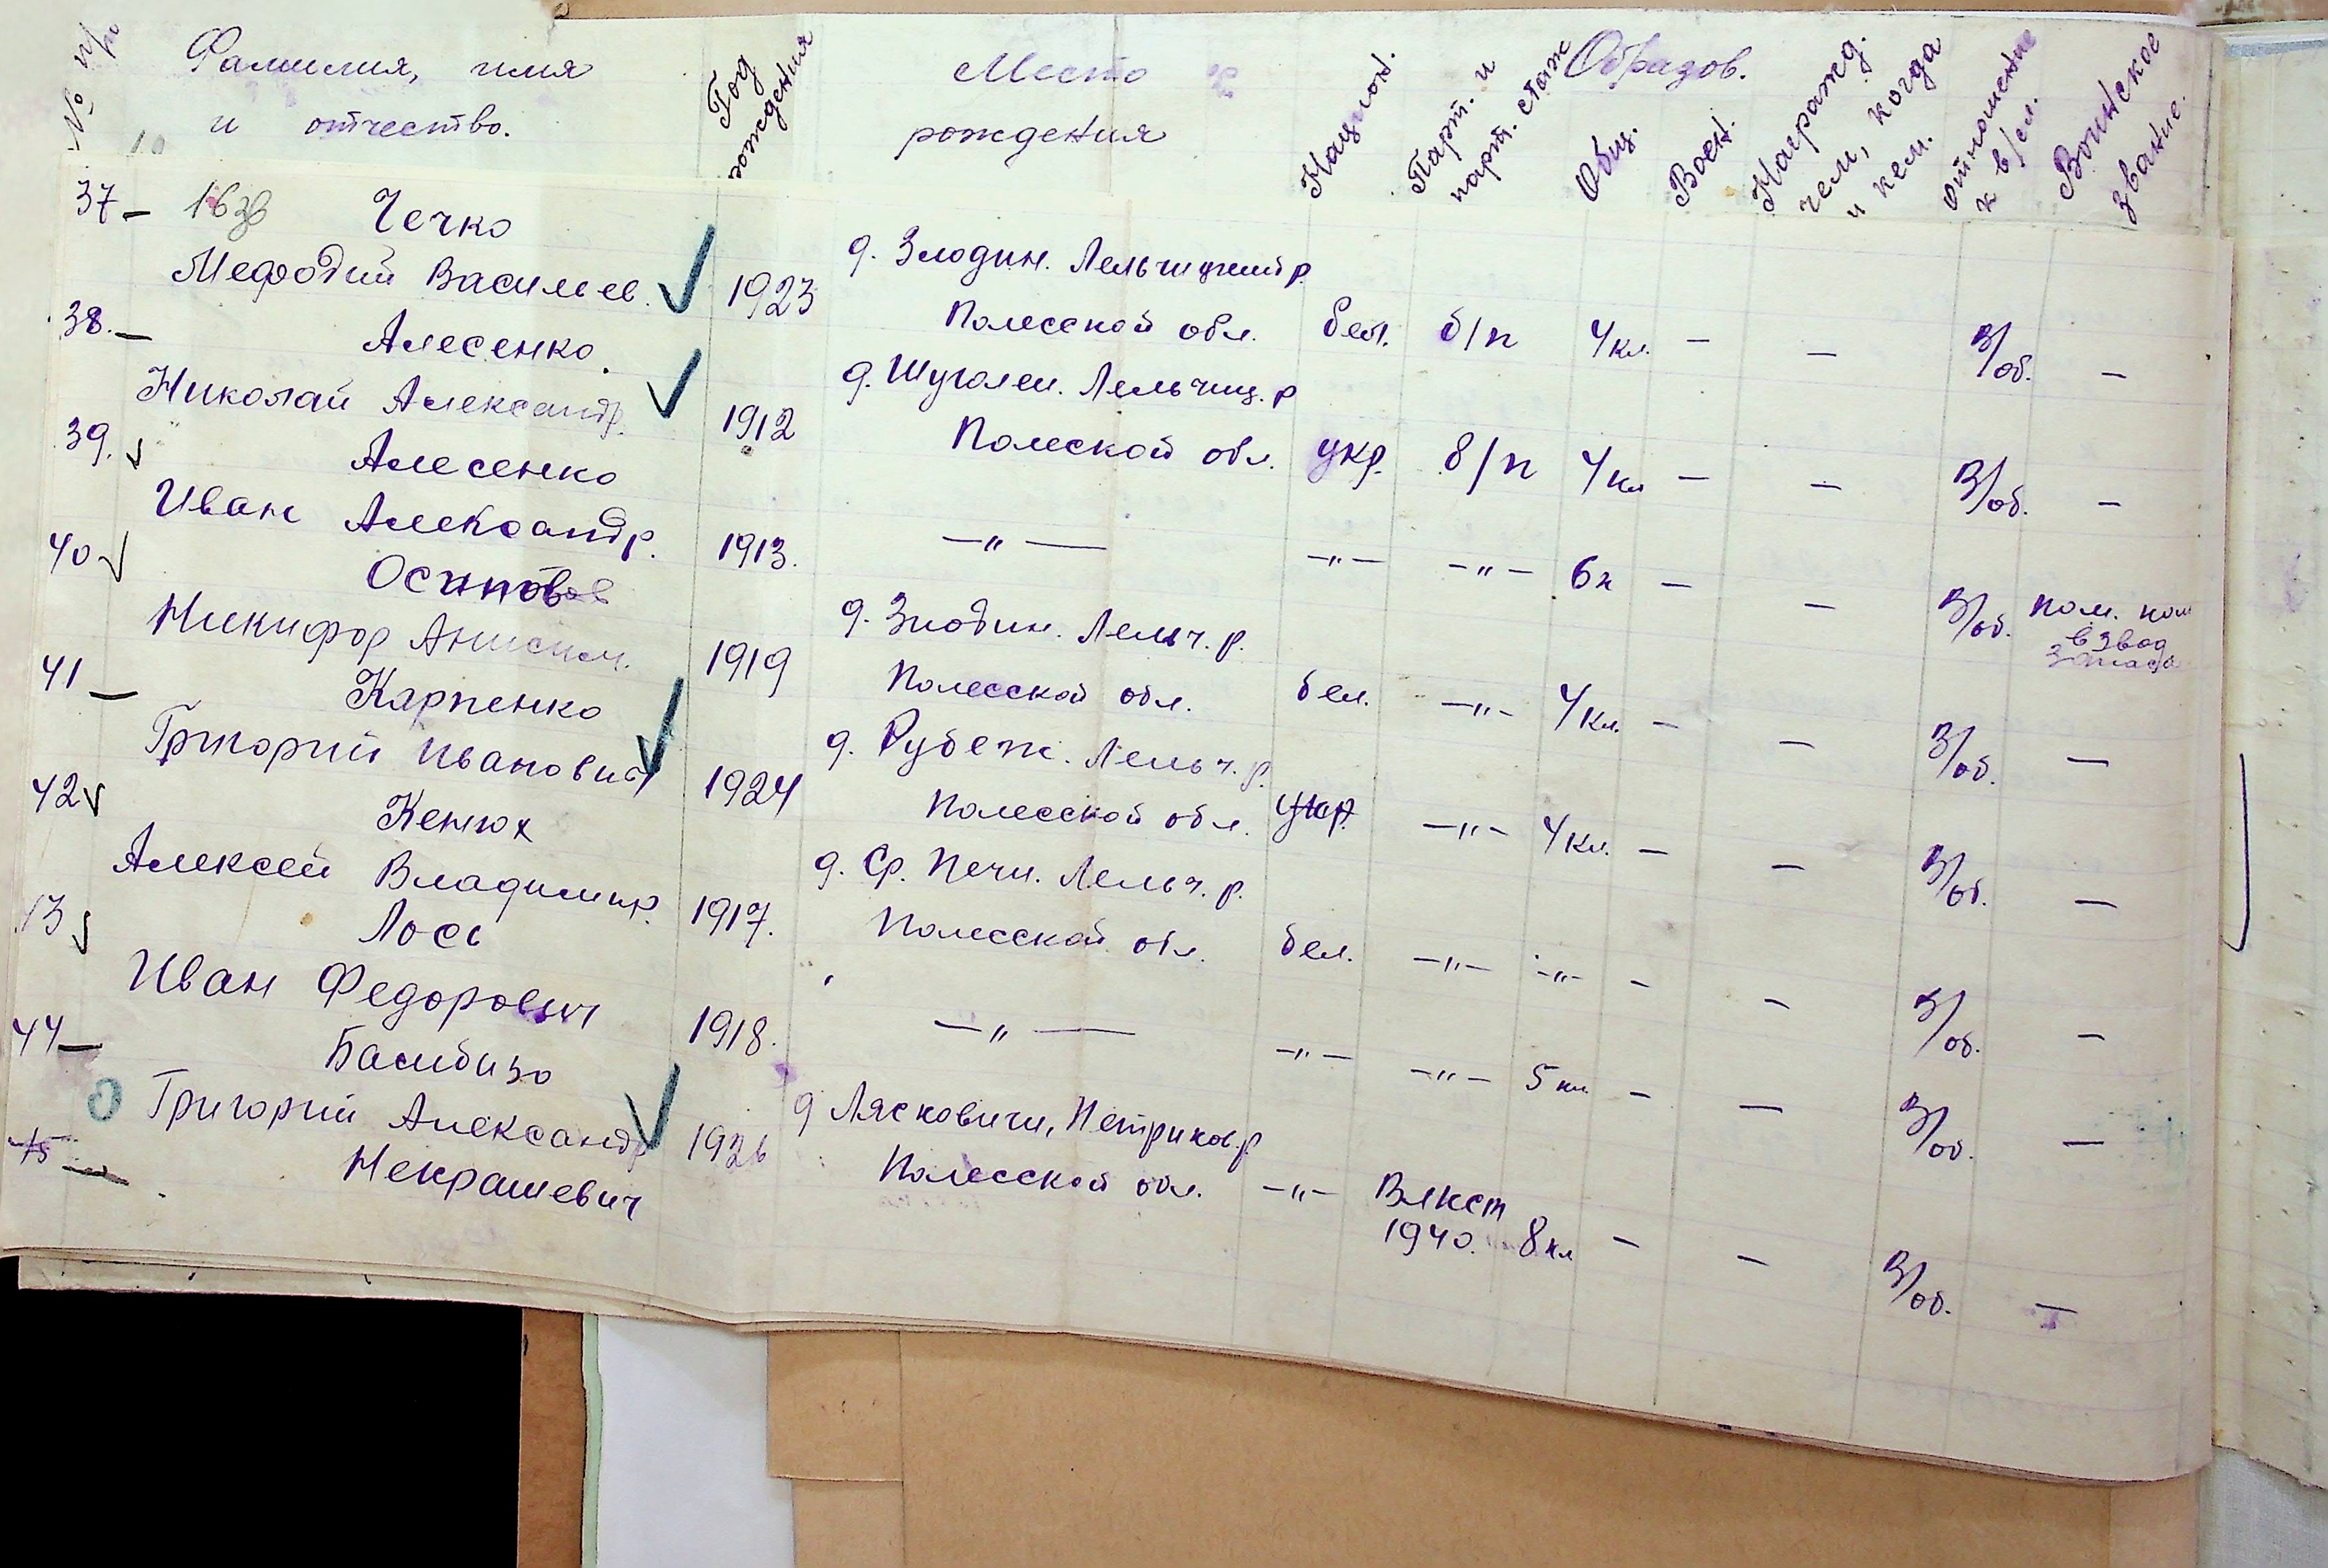 № п/п Фамилия, имя Год рождения Место Национ. Парт. и парт. стаж Образов. Награжд. чем, когда и кем. Отношение к в/сл. Воинское звание.
и отчество. рождения Общ. Воен.
37 – Чечко д. Злодин. Лельчицкий р.
Мефодий Васильев. 1923 Полесской обл. бел. б/п 4 кл. – – в/об. –
38. – Алесенко д. Шуголец. Лельчиц. р
Николай Александр. 1912 Полеской обл. укр. б/п 4 кл – – в/об. –
39. Алесенко
Иван Александр. 1913. –„– –„– –„– 6 к – – в/об. пом. ком
взвод
запаса
40 Осипов д. Злодин. Лельч. р.
Никифор Анисим. 1919 Полесской обл. бел. –„– 4 кл. – – в/об. –
41 – Карпенко д. Рубеж. Лельч. р.
Григорий Иванович 1924 Полесской обл. укр. –„– 4 кл. – – в/об. –
42 Кенюх д. Ср. Печи. Лельч. р.
Алексей Владимир. 1917. Полесской обл. бел. –„– –„– – – в/об. –
43 Лось
Иван Федорович 1918. –„– –„– –„– 5 кл – – в/об. –
44 – д Лясковичи, Петриков. р.
Григорий Александр 1926 Полесской обл. –„– Влксм
1940. 8 кл – – в/об. –
45 – Некрашевич